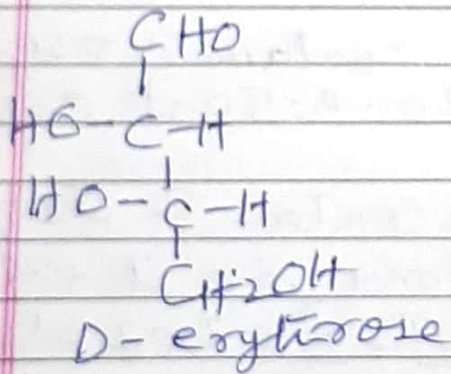 CHO
HO-C-H
HO-C-H
CH2OH
D-erythrose